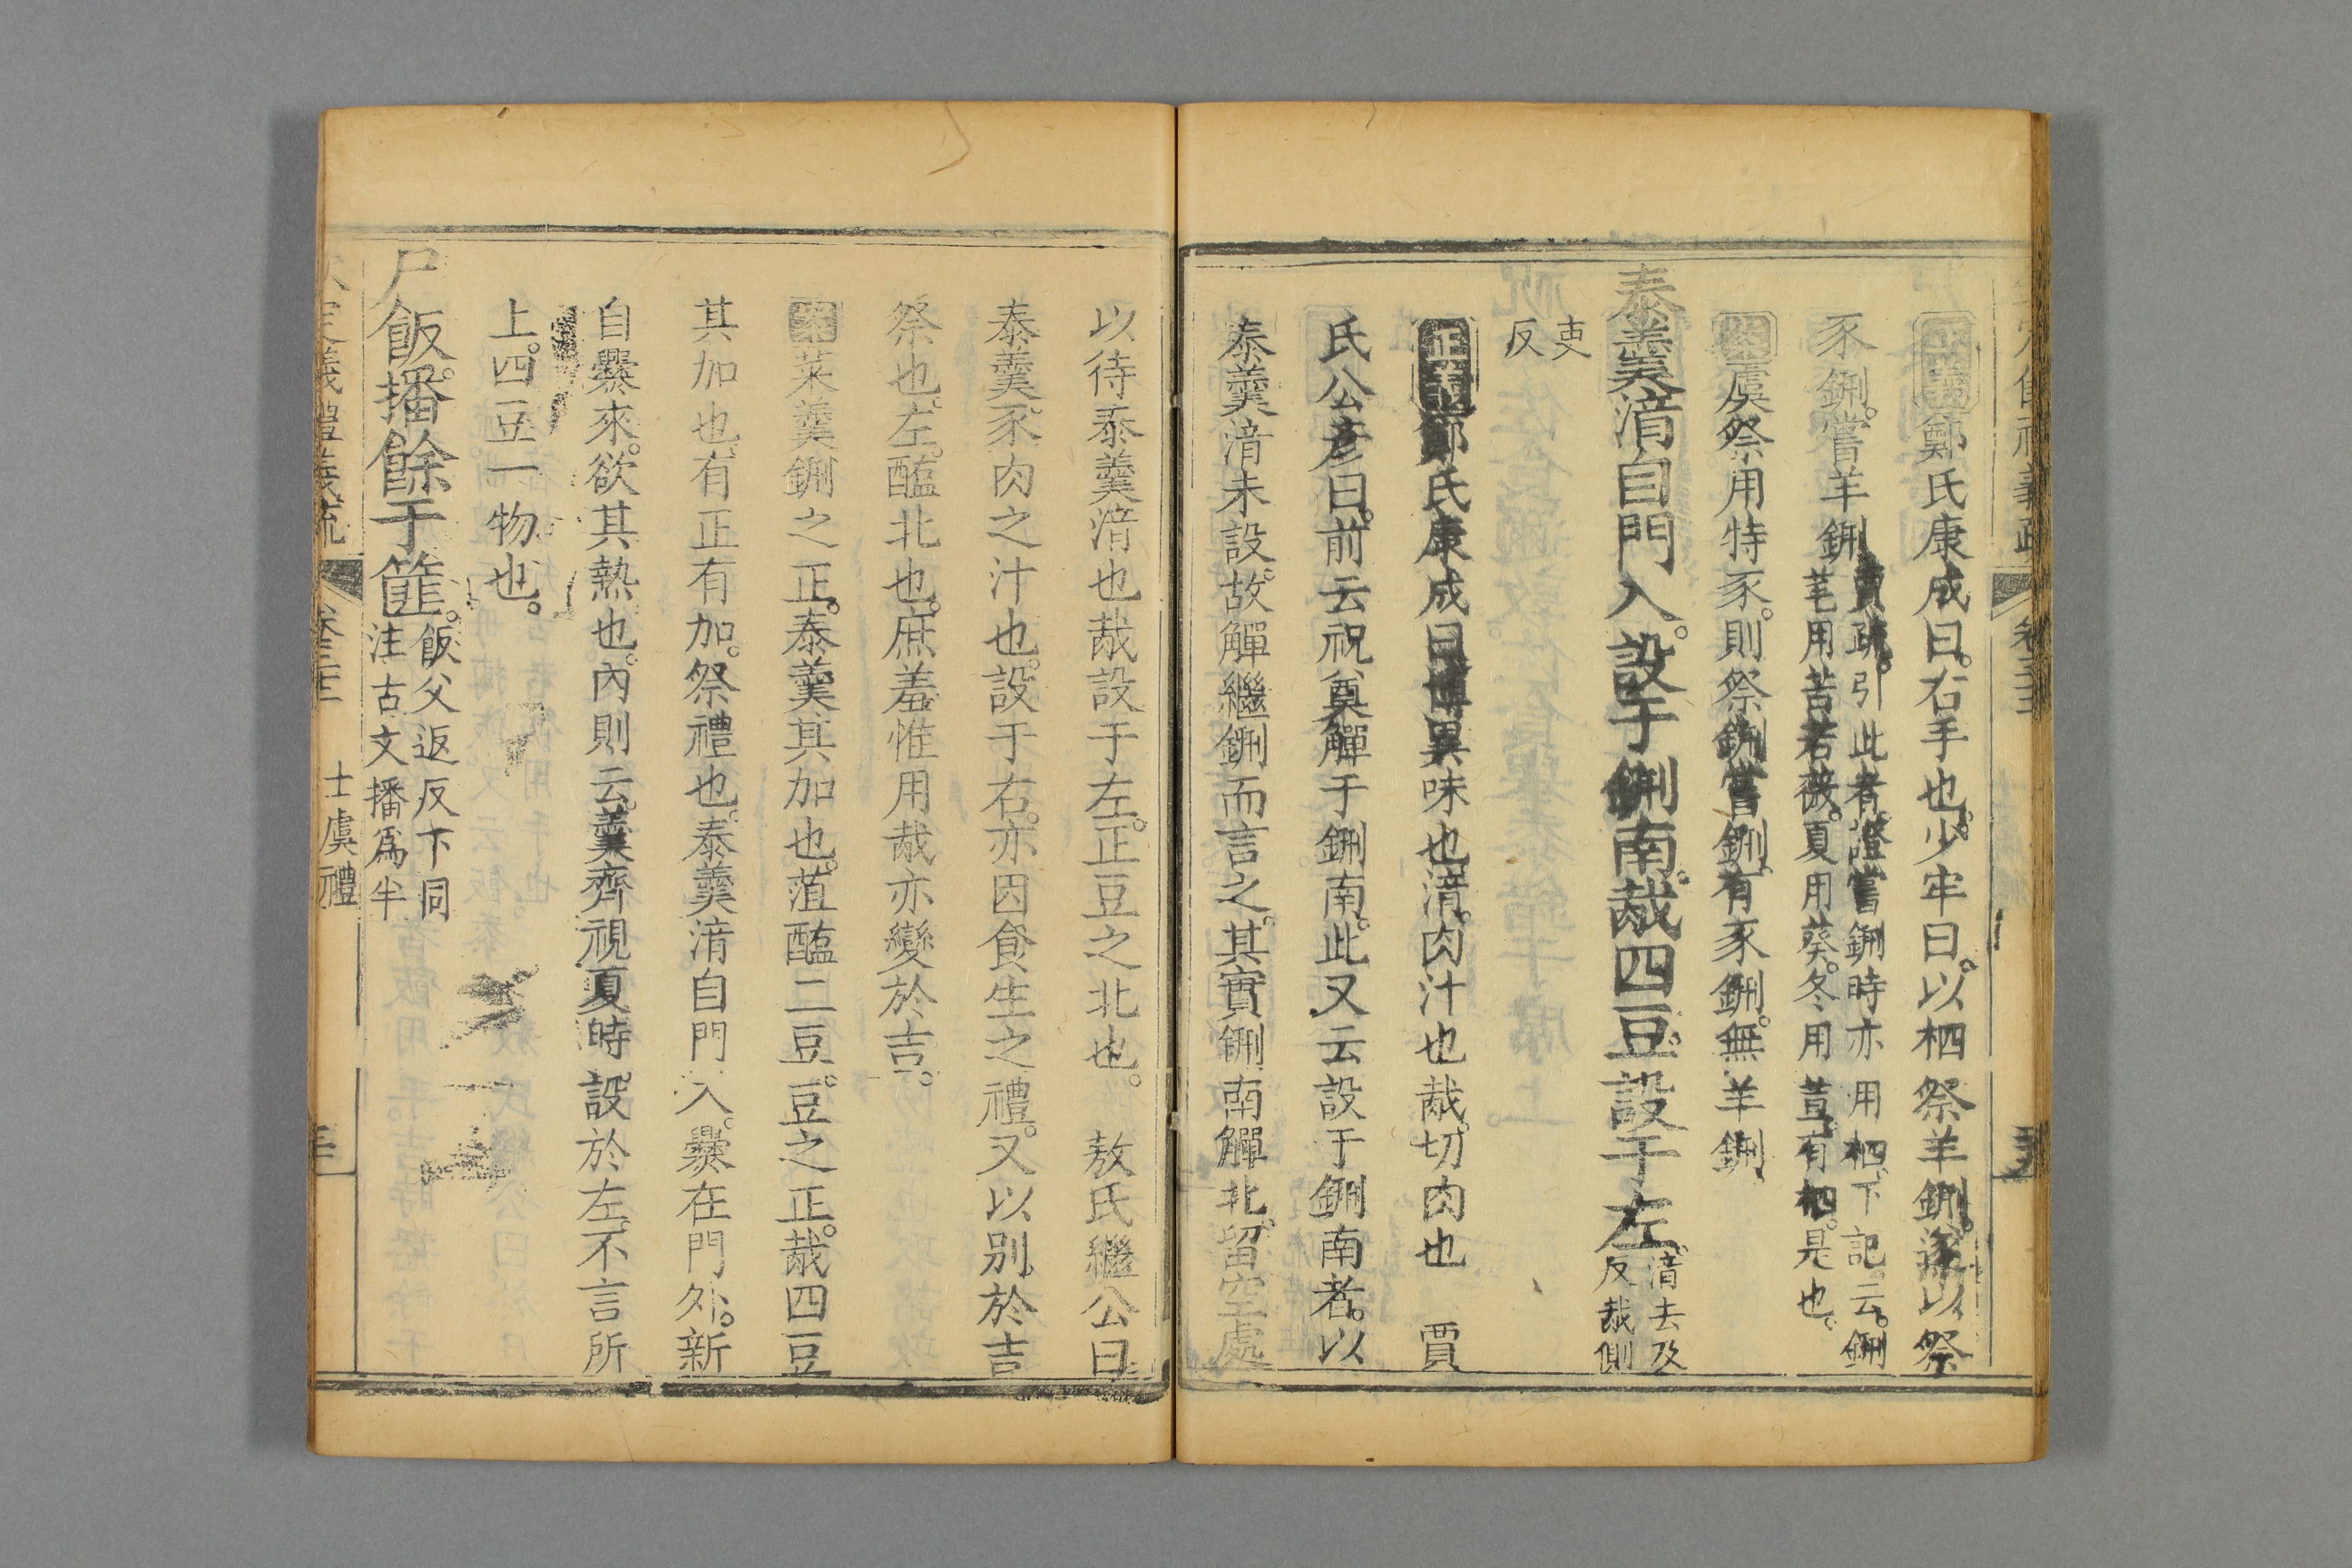 正義鄭氏康成曰右手也少牢曰以柶祭羊鉶遂以祭
豕鉶嘗羊鉶賈疏引此者證嘗鉶時亦用柶下記云鉶
芼用苦若薇夏用葵冬用荁有柶是也
案虞祭用特豕則祭鉶嘗鉶有豕鉶無羊鉶
泰羹湆自門入設于鉶南胾四豆設于左湆去及
反胾側
吏
反
正義鄭氏康成曰博異味也湆肉汁也胾切肉也 賈
氏公彥曰前云祝奠觶于鉶南此又云設于鉶南者以
泰羹湆未設故觶繼鉶而言之其實鉶南觶北留空處
以待泰羹湆也胾設于左正豆之北也 敖氏繼公曰
泰羹豕肉之汁也設于右亦因食生之禮又以別於吉
祭也左醢北也庶羞惟用胾亦變於吉
案菜羹鉶之正泰羹其加也菹醢二豆豆之正胾四豆
其加也有正有加祭禮也泰羹湆自門入爨在門外新
自爨來欲其熱也內則云羹齊視夏時設於左不言所
上四豆一物也
尸飯播餘于篚飯父返反下同
注古文播爲半
義禮義疏 卷三十三 士虞禮